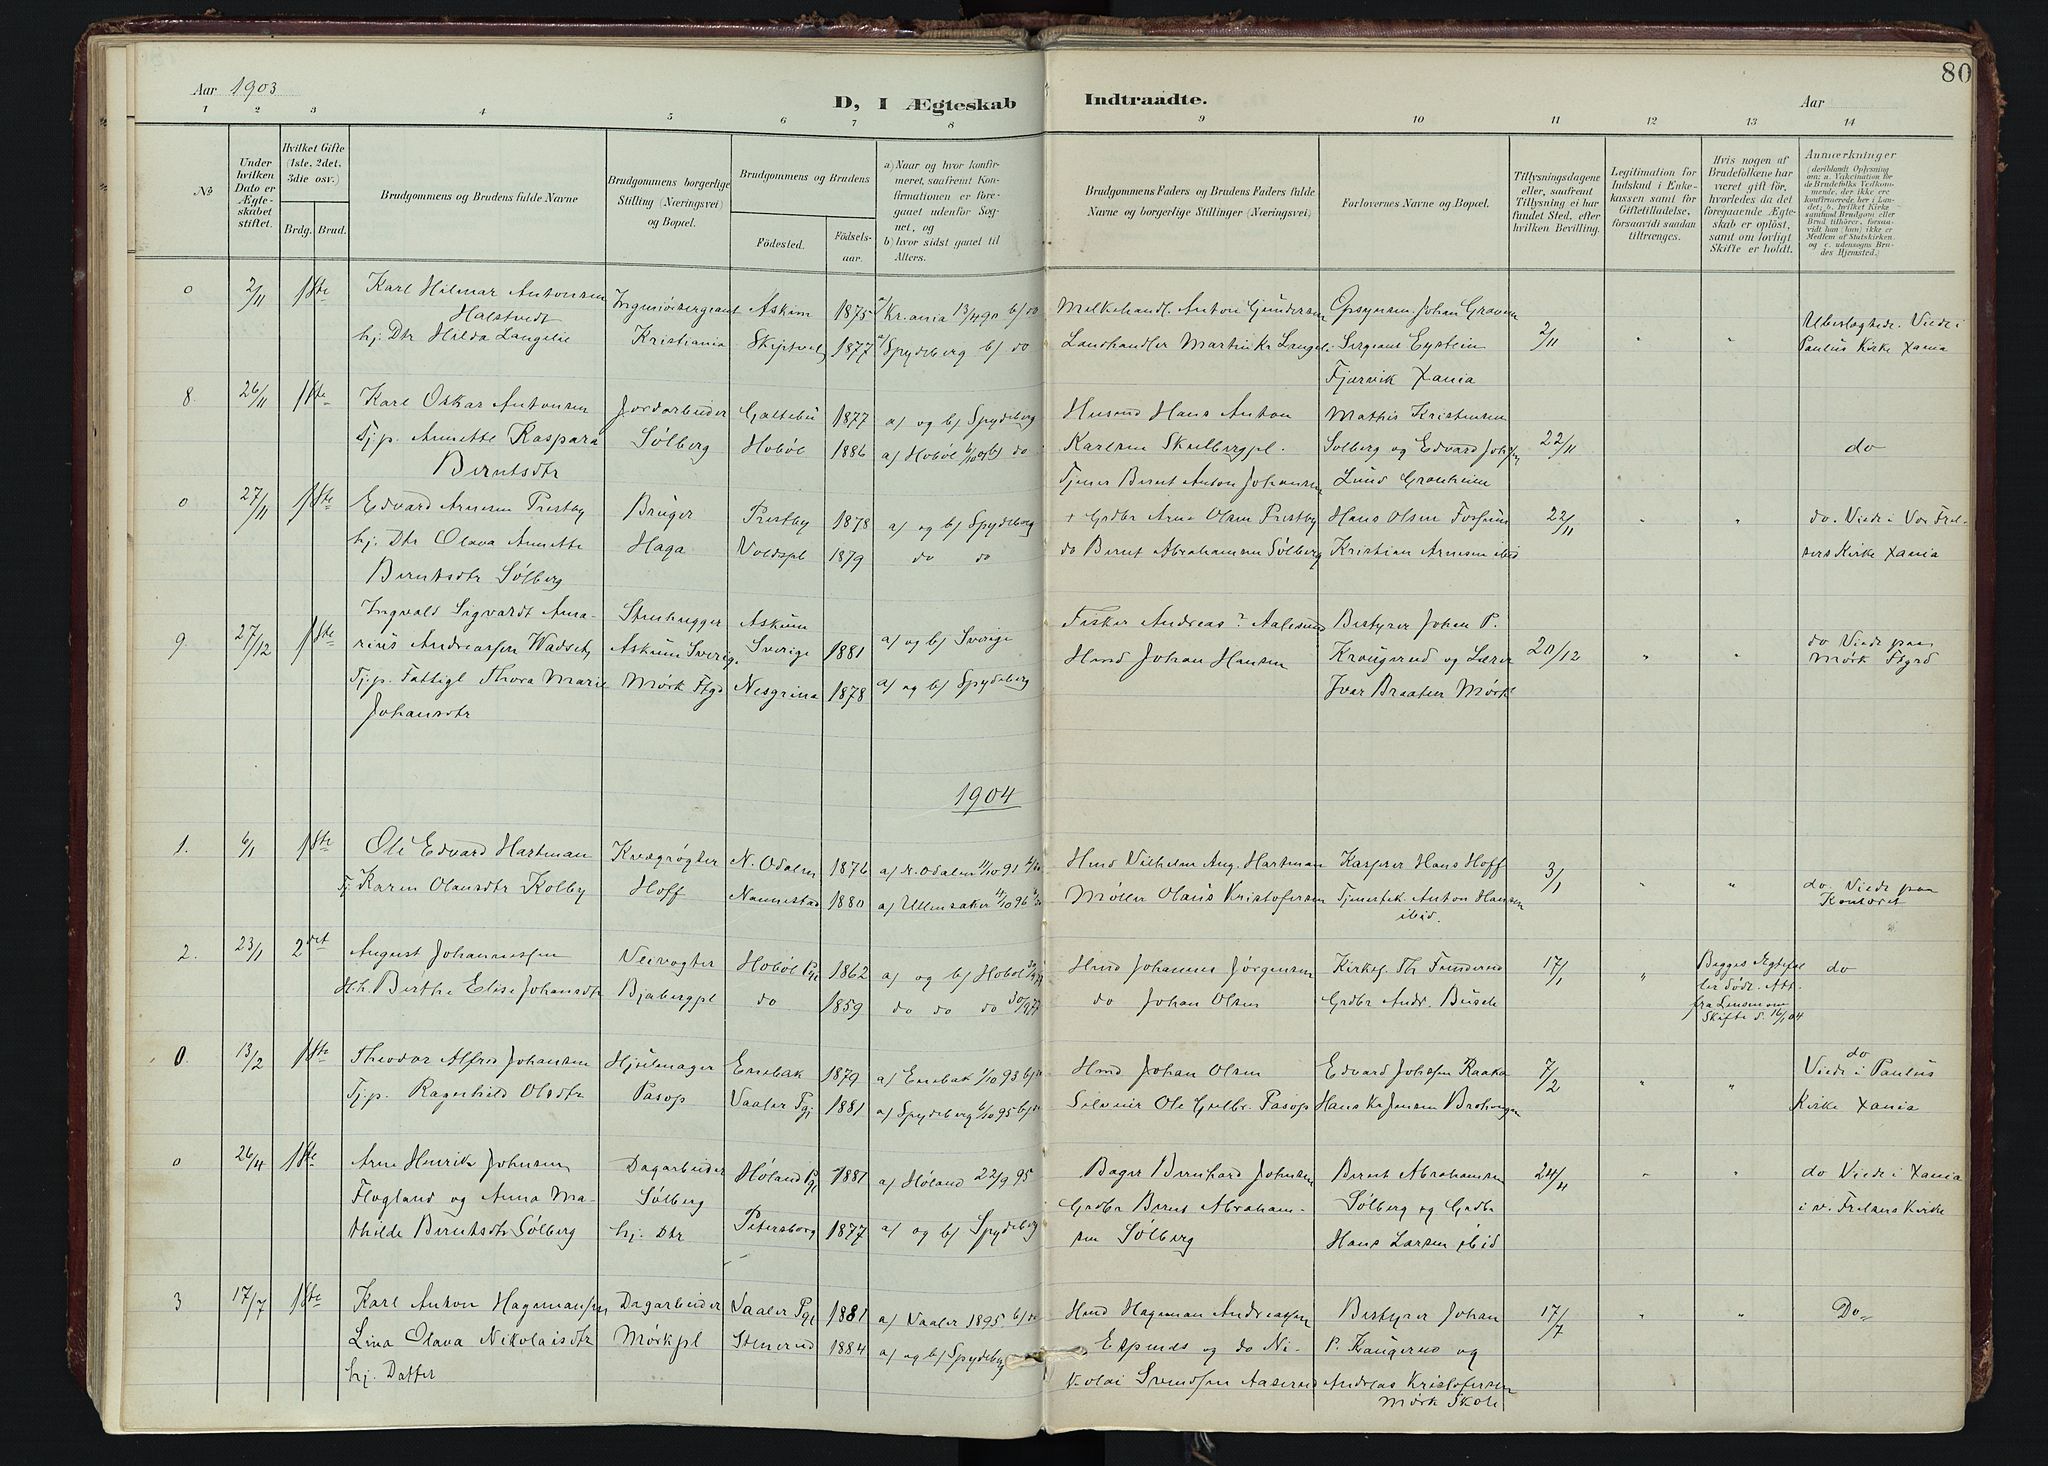 80
Aar 1903
D, I Ægteskab Indtraadte.
Aar
1 2 3 4 5 6 7 8 9 10 11 12 13 14
No
Under hvilken Dato er Ægteskabet stiftet.
Hvilket Gifte (1ste, 2det, 3die osv.)
Brdg. Brud.
Brudgommens og Brudens fulde Navne
Brudgommens borgerlige Stilling (Næringsvei) og Bopæl.
Brudgommens og Brudens
Fødested.
Fødselsaar.
a) Naar og hvor konfirmeret, saafremt Konfirmationen er foregaaet udenfor Sognet, og
b) hvor sidst gaaet til Alters.
Brudgommens Faders og Brudens Faders fulde Navne og borgerlige Stillinger (Næringsvei)
Forlovernes Navne og Bopæl.
Tillysningsdagene eller, saafremt Tillysning ei har fundet Sted, efter hvilken Bevilling.
Legitimation for Indskud i Enkekassen samt for Giftetilladelse, forsaavidt saadan tiltrænges.
Hvis nogen af Brudefolkene har været gift før, hvorledes da det foregaaende Ægteskab er opløst, samt om lovligt Skifte er holdt.
Anmærkninger
0 2/11 1ste Karl Hilmar Antonsen Askim 1875 a/ Kr.ania 13/4 90 b/ do Melkehandl. Anton Gundersen Opsynsm. Johan Graven
Halstvedt
hj. Dtr Hilda Langelie Kristiania Skiptvet 1877 a/ Spydeberg b/ do Landhandler Martin Kr. Langel. Sergeant Eystein 2/11 Viede i
Fjærvik Xania Paulus Kirke Xania
8. 26/11 1ste Karl Oskar Antonsen Jordarbeider 1877 a/ og b/ Spydeberg Husmd Hans Anton Mathis Kristensen
Tj.p. Annette Kaspara Solberg Hobøl 1886 a/ Hobøl b/ do Karlsen Solberg og Edvard 22/11 do
Berntsdtr Tjener Bernt Anton Johansen Lund Granheim
0 27/11 1ste Edvard Arnesen Prestby Bruger Prestby 1878 a/ og b/ Spydeberg + Grdbr Arne Olsen Prestby Hans Olsen Fossum 22/11 " " do. Viede i Vor Frel-
hj. Dtr Olava Annette Haga Voldspl 1879 do do do Bernt Abrahamsen Solberg Kristian Arnesen ibid sers Kirke Xania
Berntsdtr Solberg
9. 27/12 1ste Ingvald Sigvardt Ama- Stenhugger Askum Fisker Andreas ? Aalesund Bestyrer Johan P.
rius Andreassen Askum Sverig. Sverige 1881 a/ og b/ Sverige Hmd Johan Hansen Kraugerud og Lærer 20/12 " " do Viede paa
Tj.p. Fattigl Thora Marie Mørk Ftgd 1878 a/ og b/ Spydeberg Ivar Braaten Mørk Mørk Ftgrd
Johansdtr
1904
1. 6/1 1ste Ole Edvard Hartman Kvægrøgter N. Odalen 1876 a/ N. Odalen 1/10 91 Hmd Vilhelm Aug. Hartman Kasserer Hans Hoff 3/1 " "
Tj. Karen Olausdtr Kolby Hoff Nannestad 1880 a/ Ullensaker Møller Olaus Kristofersen Anton Hansen do. Viede paa
ibid. Kontoret
2. 23/1 2det August Johannessen Veivogter Hobøl Pgj 1862 a/ og b/ Hobøl Hmd Johannes Jørgensen Kirkes. Th Funderud 17/1 " Begges Ægtefæl- do
H.h. Berthe Elise Johansdtr Bjabergpl do 1859 do do do do Johan Olsen Grdbr Andr. Busch ler døde. Att.
fra Lensm om
Skifte d. 16/1 04
0. 13/2 1ste Theodor Alfred Johansen Hjulmager Enebak 1879 a/ Enebak 1/10 93 b/ do Hmd Johan Olsen Edvard Johssen Raaka 7/2 " " do
Viede i Paulus
Tj.p. Ragnhild Olsdtr Pasop Vaaler Pgj 1881 a/ Spydeberg 6/10 95 b/ do Selveier Ole Gulbr. Pasop Hans Kr Jensen Kirke Xania
0 26/4 1ste Arne Henrik Johnsen Dagarbeider Høland Pgj 1881 a/ Høland 22/9 95 Bager Bernhard Johnsen Bernt Abrahamsen 24/4 " " do Viede i Xania
Flogland og Anna Ma- Solberg Grdbr Bernt Abraham- Solberg og Grdbr i v. Frelsers Kirke
thilde Berntsdtr Solberg hj. Dtr Petersborg 1877 a/ og b/ Spydeberg sen Solberg Hans Larsen ibid
3 17/7 1ste Karl Anton Hagemansen Dagarbeider Vaaler Pgj 1881 a/ Vaaler 1895 b/ do Hmd Hageman Andreassen Bestyrer Johan 17/7 " " Do
Lina Olava Nikolaisdtr Mørkpl Stenerud 1884 a/ og b/ Spydeberg og do Ni- P. Kraugerud og
hj. Datter kolai Svendsen Aaserud Andreas Kristofersen
Mørk Skole